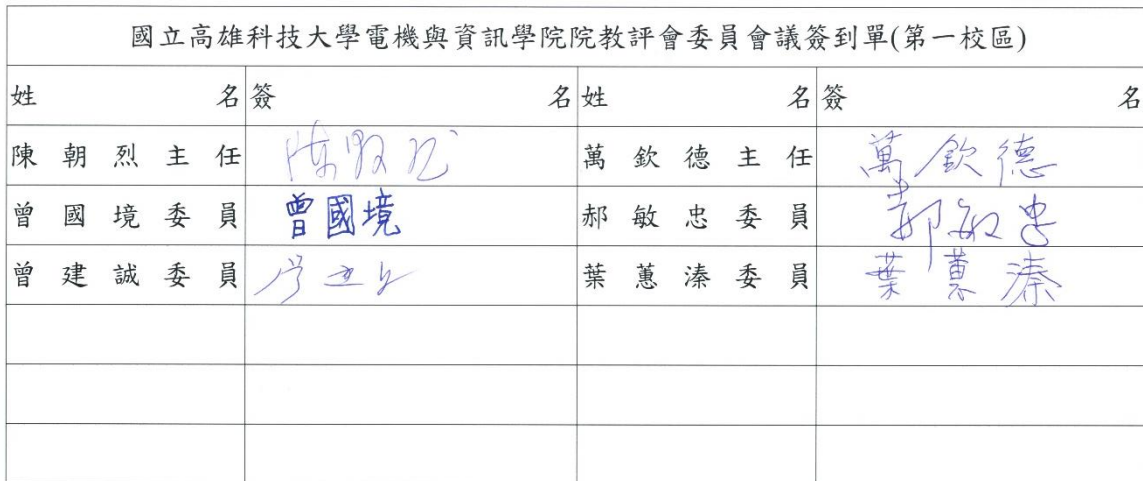 國立高雄科技大學電機與資訊學院院教評會委員會議簽到單(第一校區)
姓名 簽名 姓名 簽名
陳朝烈主任 萬欽德主任 萬欽德
曾國境委員 曾國境 郝敏忠委員 郝敏忠
曾建誠委員 葉蕙溱委員 葉蕙溱